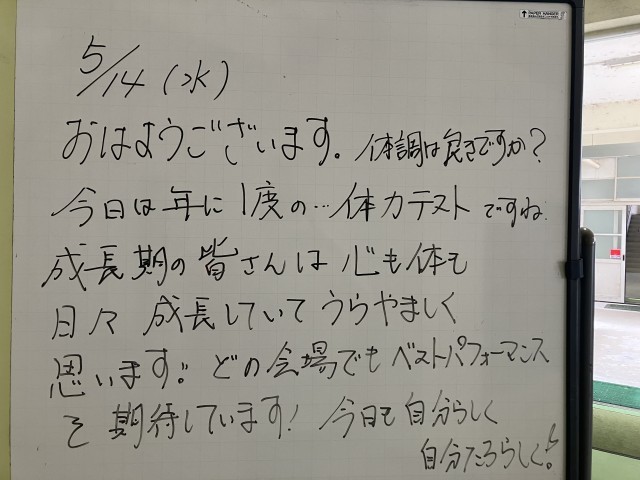 5/14(水)
おはようございます。体調は良きですか?
今日は年に1度の…体力テストですね
成長期の皆さんは心も体も
日々成長していてうらやましく
思います。どの会場でもベストパフォーマンス
を期待しています!今日も自分らしく
自分たちらしく!